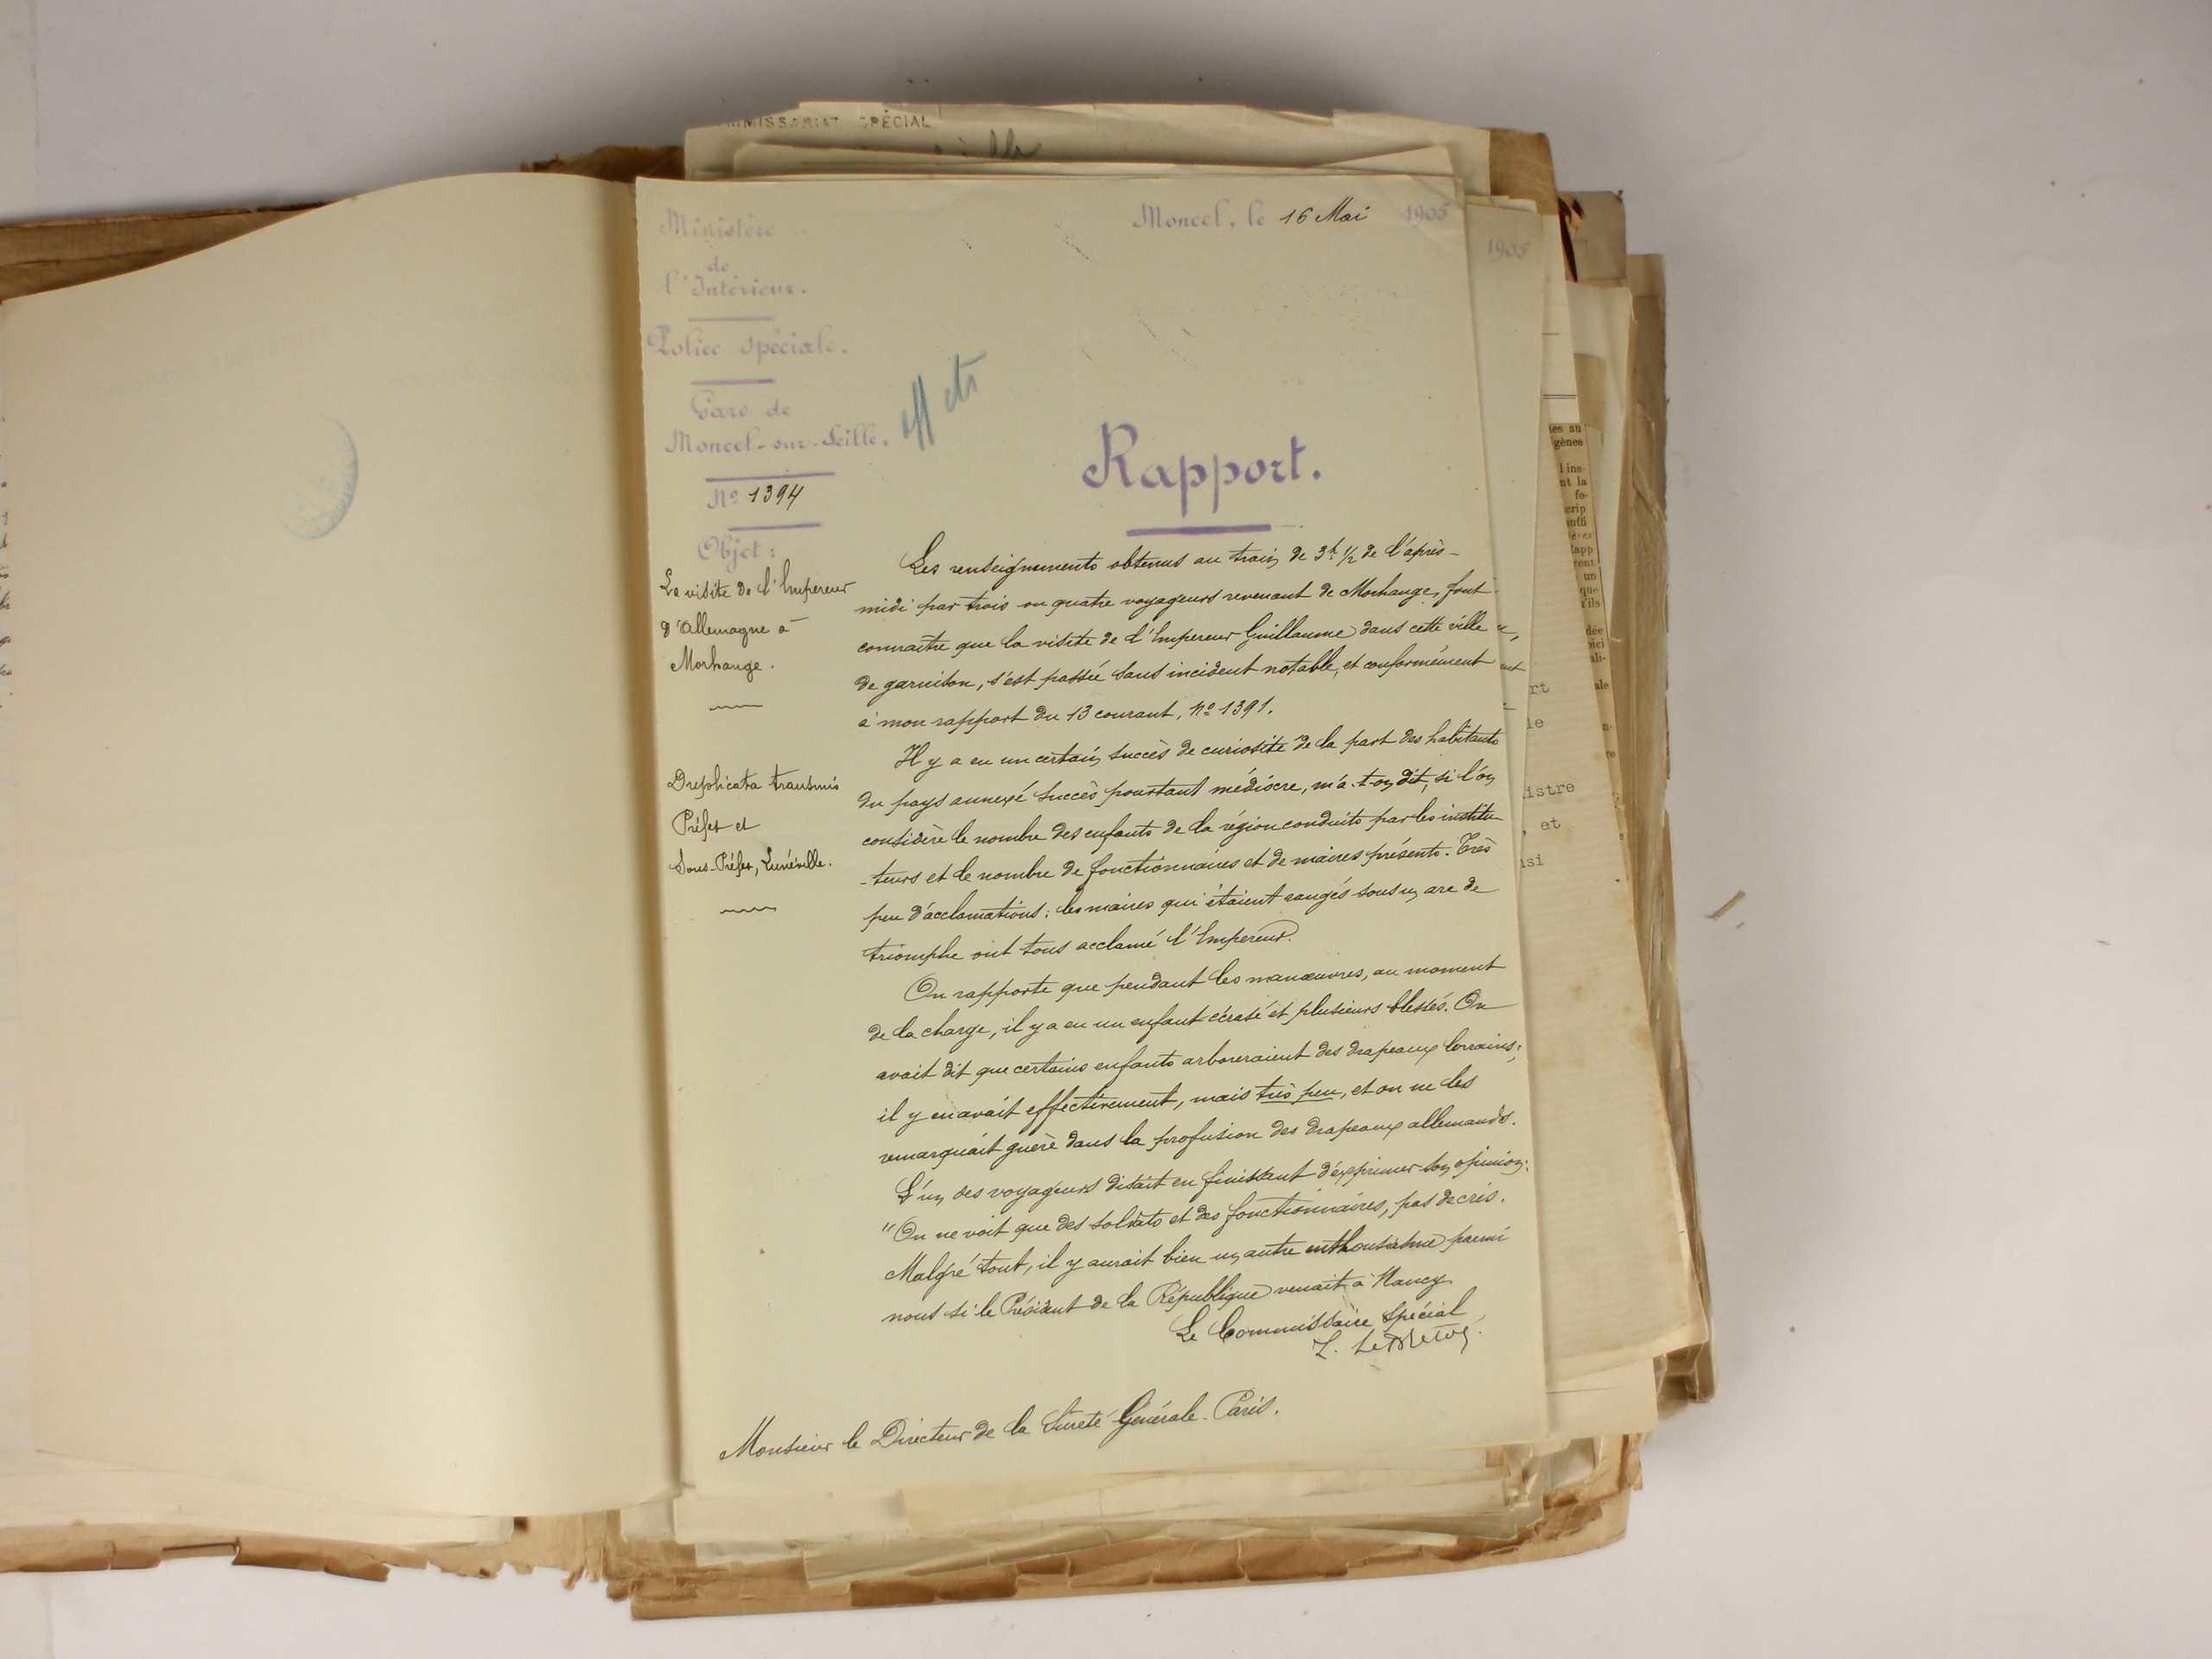 COMMISSARIAT SPÉCIAL
Moncel, le 16 Mai 1905
1905
Ministère
de
l'Intérieur.
Police Spéciale.
Gare de
Moncel-sur-Seille.
Nº 1394
Objet :
La visite de l'Empereur
d'Allemagne à
Morhange.
Duplicata transmis
Préfet et
Sous-Préfet, Lunéville.
Rapport.
Les renseignements obtenus au train de 3h ½ de l'après-
midi par trois ou quatre voyageurs revenant de Morhange, font
connaître que la visite de l'Empereur Guillaume dans cette ville
de garnison, s'est passée sans incident notable, et conformément
à mon rapport du 13 courant, Nº 1391.
Il y a eu un certain succès de curiosité de la part des habitants
du pays annexé succès pourtant médiocre, m'a-t-on dit, si l'on
considère le nombre des enfants de la région conduits par les institu
-teurs et le nombre de fonctionnaires et de maires présents. Très
peu d'acclamations ; les maires qui étaient rangés sous un arc de
triomphe ont tous acclamé l'Empereur.
On rapporte que pendant les manœuvres, au moment
de la charge, il y a eu un enfant écrasé et plusieurs blessés. On
avait dit que certains enfants arboreraient des drapeaux lorrains ;
il y en avait effectivement, mais très peu, et on ne les
remarquait guère dans la profusion des drapeaux allemands.
L'un des voyageurs disait en finissant d'exprimer son opinion :
"On ne voit que des soldats et des fonctionnaires, pas de cris.
Malgré tout, il y aurait bien un autre enthousiasme parmi
nous si le Président de la République venait à Nancy
Le Commissaire Spécial
Monsieur le Directeur de la Sureté Générale - Paris.